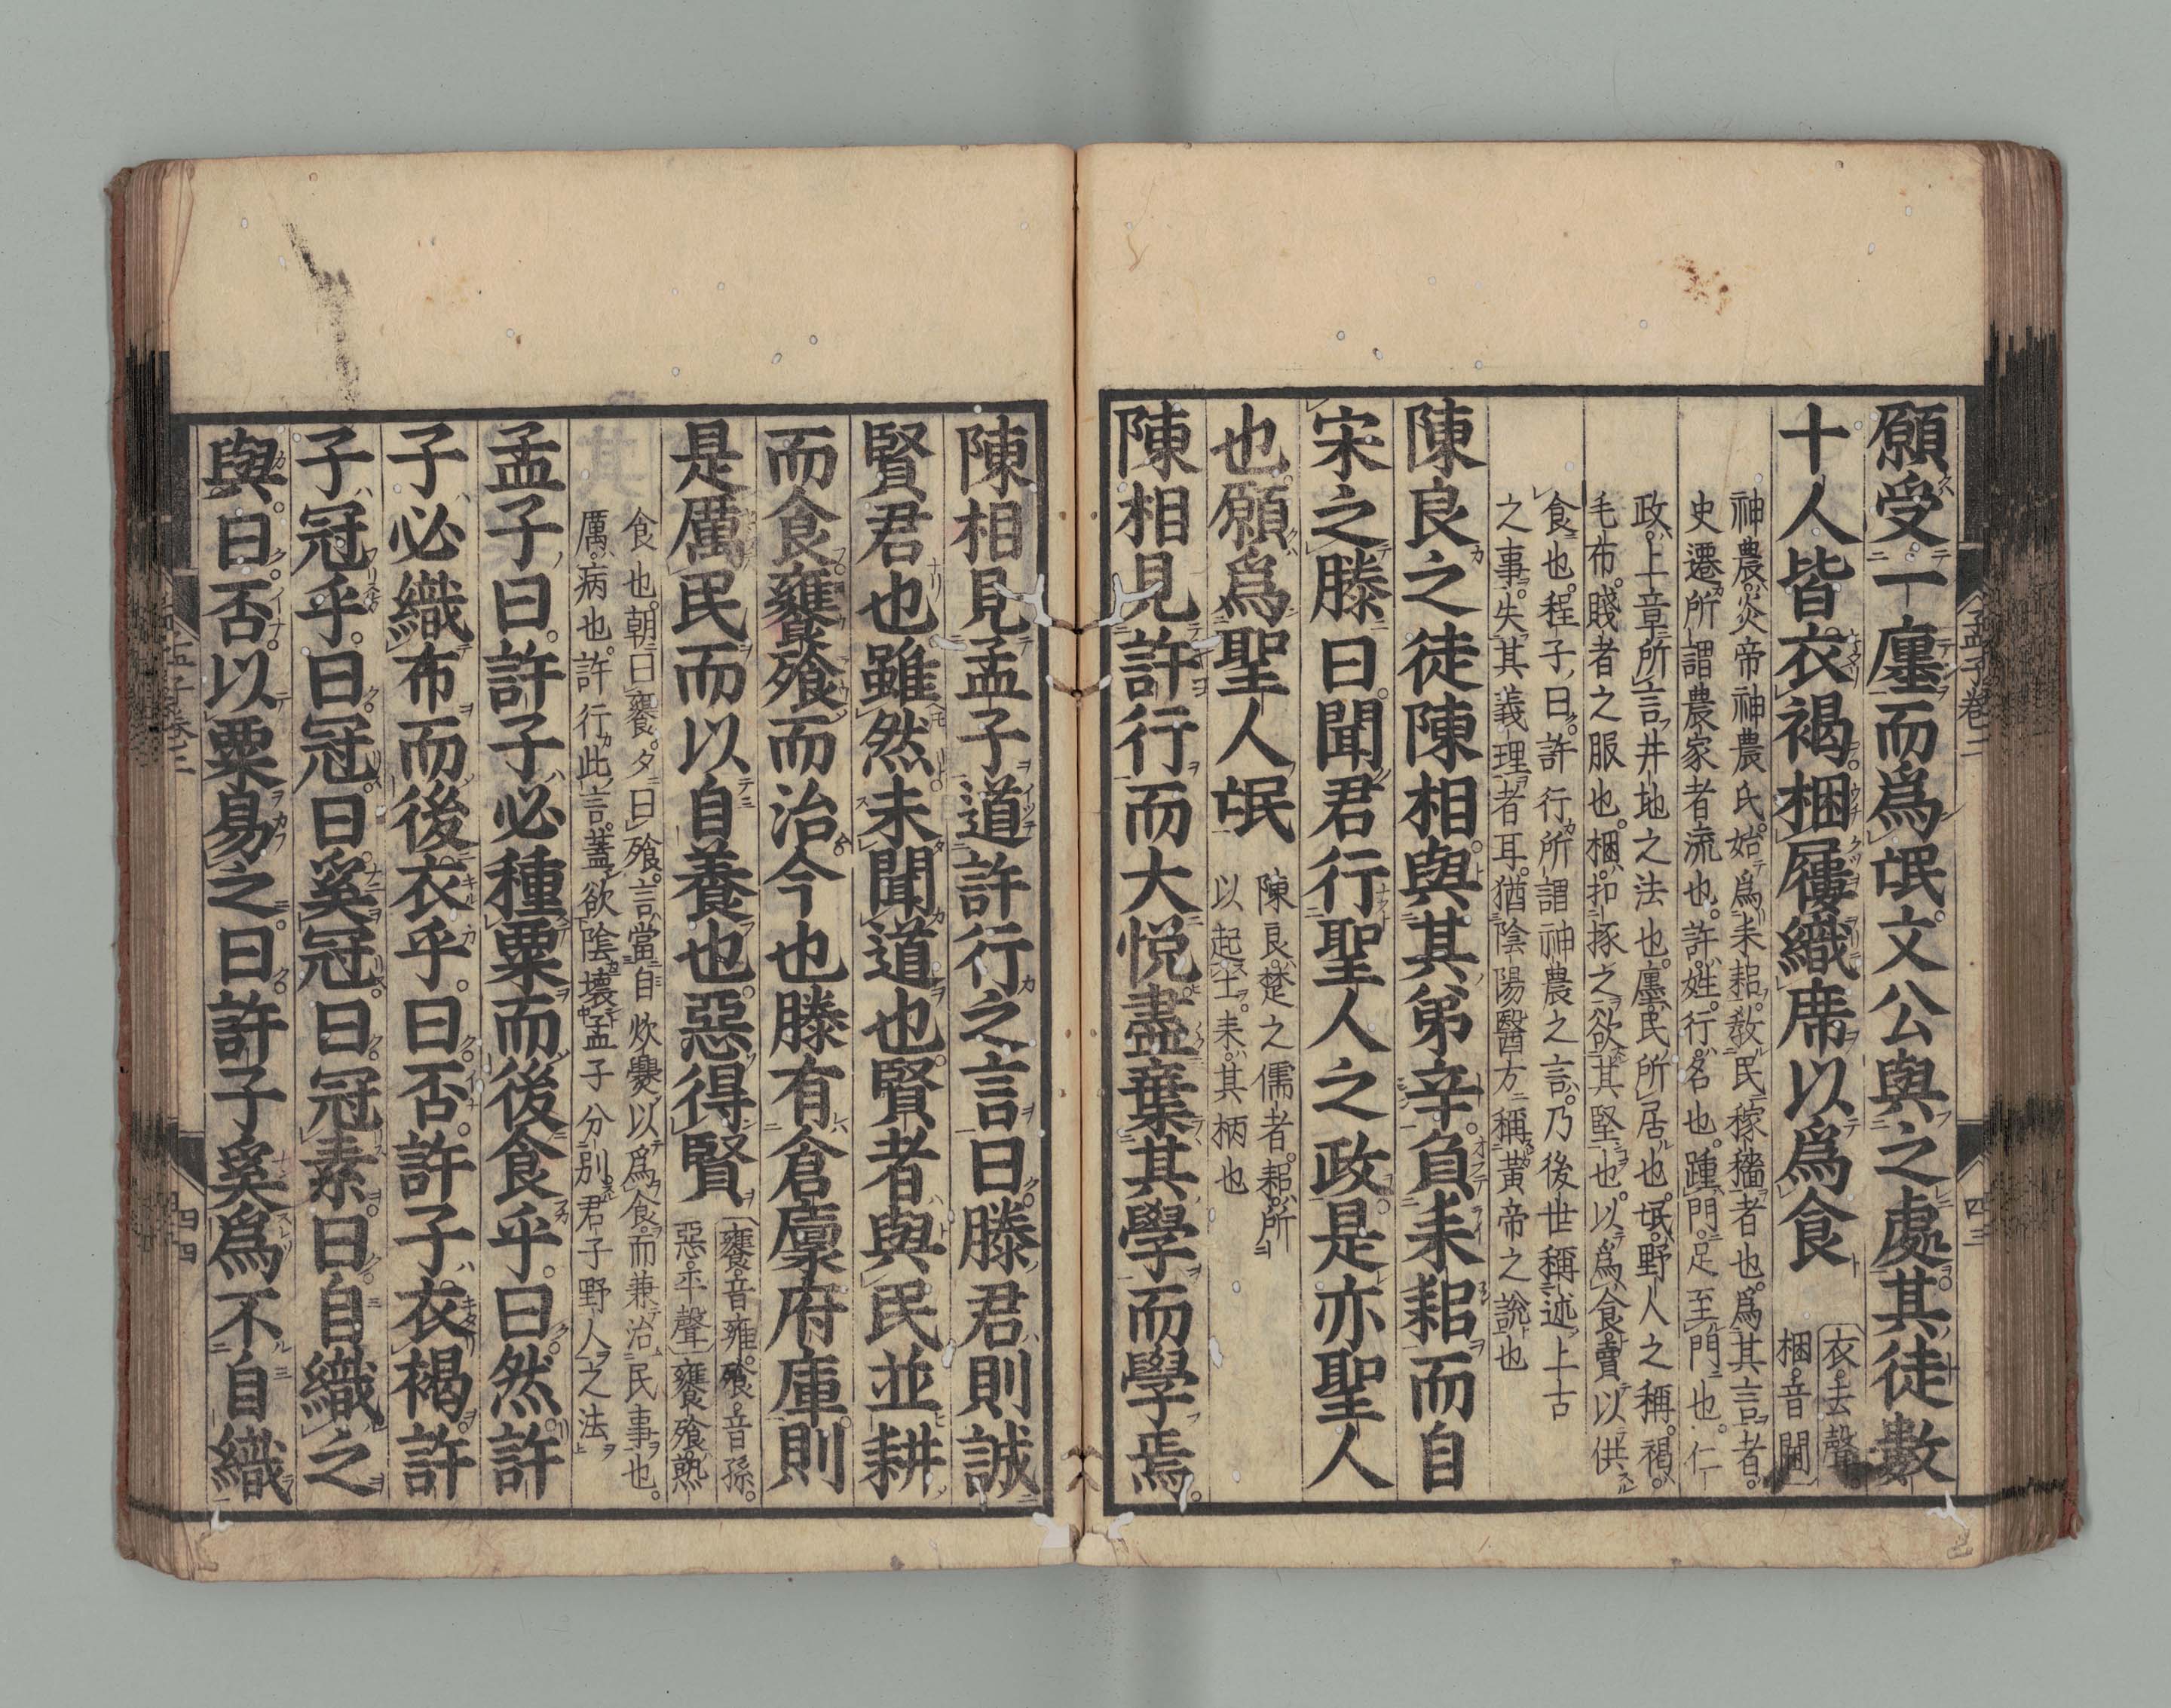 願受一廛而爲氓文公與之處其徒數
十人皆衣褐梱屨織席以爲食
衣去聲
梱音閫
神農炎帝神農氏始爲耒耜敎民稼穡者也爲其言者
史遷所謂農家者流也許姓行名也踵門足至門也仁
政上章所言井地之法也廛民所居也氓野人之稱褐
毛布賤者之服也梱扣㧻之欲其堅也以爲食賣以供
食也程子曰許行所謂神農之言乃後世稱述上古
之事失其義理者耳猶陰陽醫方稱黃帝之說也
陳良之徒陳相與其弟辛負耒耜而自
宋之滕曰聞君行聖人之政是亦聖人
也願爲聖人氓
陳良楚之儒者耜所
以起土耒其柄也
陳相見許行而大悦盡棄其學而學焉
孟子卷二
四三
陳相見孟子道許行之言曰滕君則誠
賢君也雖然未聞道也賢者與民並耕
而食饔飧而治今也滕有倉廩府庫則
是厲民而以自養也惡得賢
饔音雍飧音孫
惡平聲饔飧熟
食也朝曰饔夕曰飧言當自炊爨以爲食而兼治民事也
厲病也許行此言蓋欲陰壞孟子分別君子野人之法
孟子曰許子必種粟而後食乎曰然許
子必織布而後衣乎曰否許子衣褐許
子冠乎曰冠曰奚冠曰冠素曰自織之
與曰否以粟易之曰許子奚爲不自織
四四